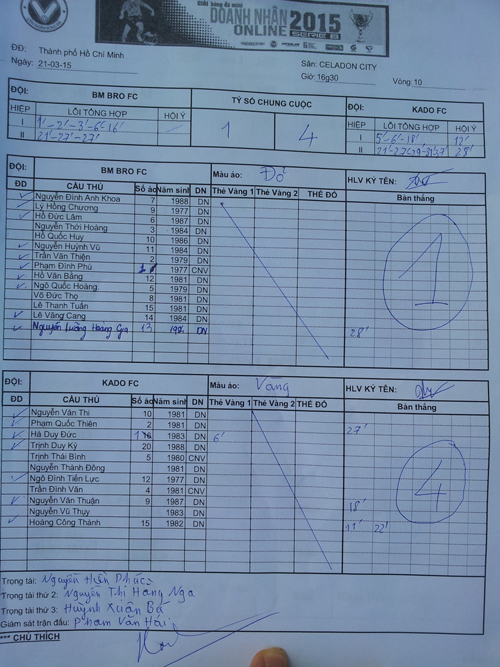 Giải bóng đá mini
DOANH NHÂN 2015
ONLINE SERIE B
ĐĐ: Thành phố Hồ Chí Minh
Ngày: 21-03-15
Sân: CELADON CITY
Giờ: 16g30 Vòng 10
ĐỘI: BM BRO FC TỶ SỐ CHUNG CUỘC ĐỘI: KADO FC
HIỆP LỖI TỔNG HỢP HỘI Ý 1 4 HIỆP LỖI TỔNG HỢP HỘI Ý
I 1'-2'-3'-6'-16' I 5'-6'-18' 12'
II 21'-27'-27' II 28'
ĐỘI: BM BRO FC Màu áo: Đỏ HLV KÝ TÊN:
ĐD CẦU THỦ Số áo Năm sinh DN Thẻ Vàng 1 Thẻ Vàng 2 THẺ ĐỎ Bàn thắng
Nguyễn Đình Anh Khoa 7 1988 DN
Lý Hồng Chương 9 1977 DN
Hồ Đức Lâm 6 1987 DN
Nguyễn Thới Hoàng 3 1984 DN
Hồ Quốc Huy 10 1986 DN
Nguyễn Huỳnh Vũ 11 1984 DN
Trần Văn Thiện 2 1979 DN
Phạm Đình Phú 1977 CNV
Hồ Văn Bằng 12 1981 DN
Ngô Quốc Hoàng 5 1979 DN
Võ Đức Thọ 8 1981 DN
Lê Thanh Tuấn 15 1981 DN
Lê Văng Cang 14 1984 DN
Nguyễn Lường Hoàng 13 DN 28'
1
ĐỘI: KADO FC Màu áo: Vang HLV KÝ TÊN:
ĐD CẦU THỦ Số áo Năm sinh DN Thẻ Vàng 1 Thẻ Vàng 2 THẺ ĐỎ Bàn thắng
Nguyễn Văn Thi 10 1981 DN 27'
Phạm Quốc Thiên 2 1981 DN
Hà Duy Đức 1983 DN 6'
Trịnh Duy Ký 20 1988 DN
Trịnh Thái Bình 5 1980 CNV
Nguyễn Thành Đông 1981 DN
Ngô Đình Tiến Lực 12 1977 DN
Trần Đình Văn 4 1981 CNV
Nguyễn Văn Thuận 9 1987 DN 18'
Nguyễn Vũ Thụy 1983 DN
Hoàng Công Thành 15 1982 DN 11' 22'
4
Trọng tài: Nguyễn Hiền Phúc
Trọng tài thứ 2: Nguyễn Thị Hang Nga
Trọng tài thứ 3: Huỳnh Xuân Bá
Giám sát trận đấu: Phạm Văn Hải
*** CHÚ THÍCH